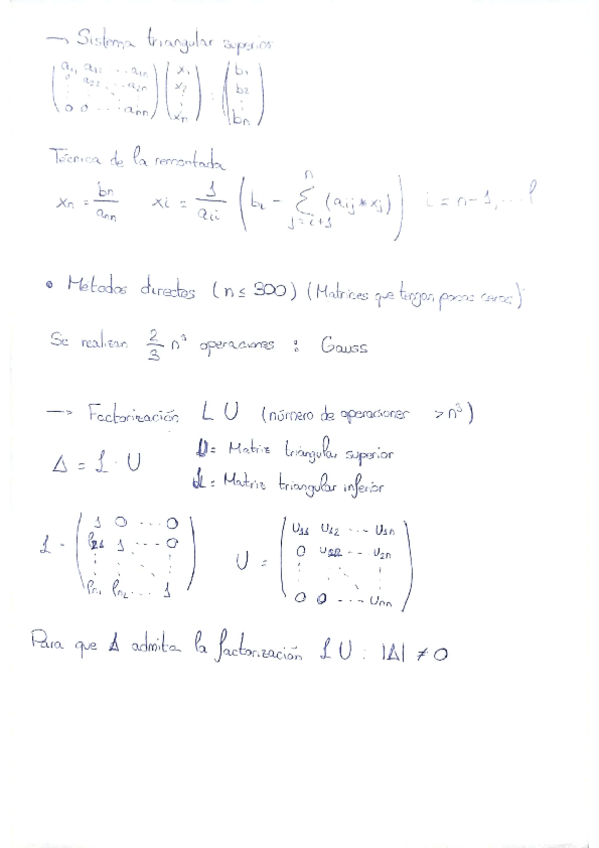 → Sistema triangular superior
( a11 a12 ... a1n ) ( x1 ) ( b1 )
( 0 a22 ... a2n ) ( x2 ) = ( b2 )
( ⋮ ⋮ ⋱ ⋮ ) ( ⋮ ) ( ⋮ )
( 0 0 ... ann ) ( xn ) ( bn )
Técnica de la remontada
xn = bn/ann xi = 1/aii ( bi - Σ_{j=i+1}^{n} (aij * xj) ) i = n-1, ... 1
• Metodos directos (n ≤ 300) (Matrices que tengan pocos ceros)
Se realizan 2/3 n³ operaciones : Gauss
→ Factorización L U (número de operaciones > n³)
A = L · U U = Matriz triangular superior
L = Matriz triangular inferior
L = ( 1 0 ... 0 ) U = ( u11 u12 ... u1n )
( l21 1 ... 0 ) ( 0 u22 ... u2n )
( ⋮ ⋮ ⋱ ⋮ ) ( ⋮ ⋮ ⋱ ⋮ )
( ln1 ln2 ... 1 ) ( 0 0 ... unn )
Para que A admita la factorización L U : |A| ≠ 0